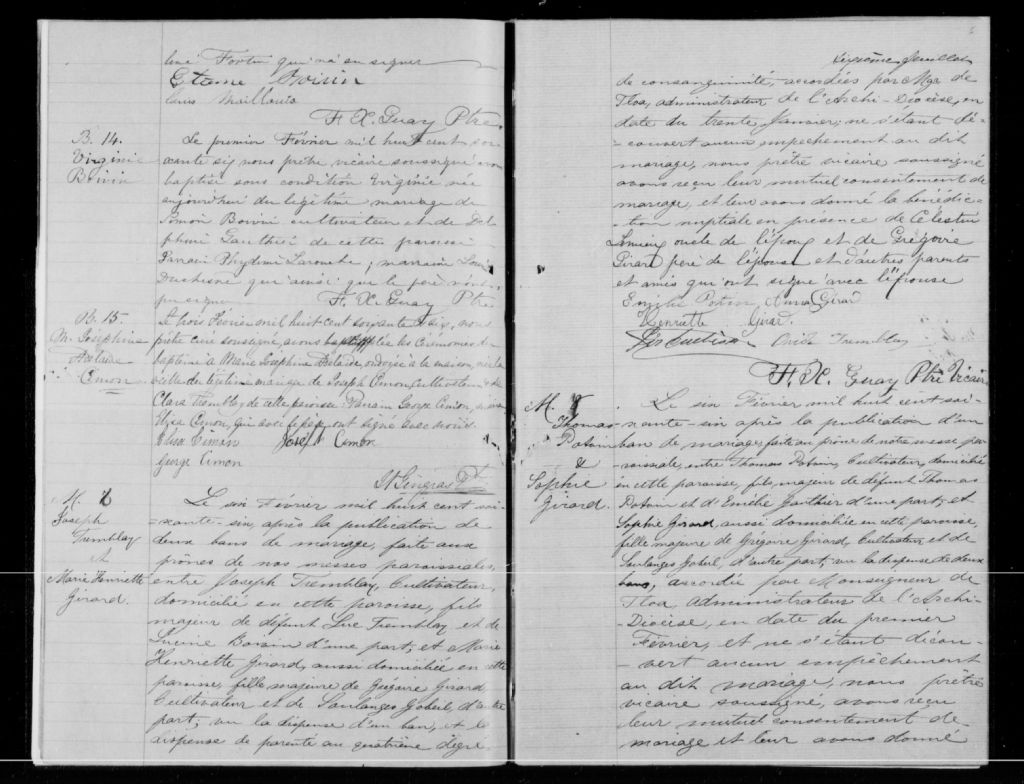 Fortin qui n'a su signer
Boivin
Maillouis
F. X. Guay Ptre
B. 14.
Virginie
Boivin
Le premier Février mil huit cent soi-
xante six nous prêtre vicaire soussigné avons
baptisé sous condition Virginie née
aujourd'hui du légitime mariage de
Simon Boivin cultivateur et de Del
phine Gauthié de cette paroisse
Parrain Larouche ; marraine
Duchesne qui ainsi que le père n'ont
pu signer F. X. Guay Ptre
B. 15.
M. Joséphine
Adelaide
Cimon
Le trois Février mil huit cent soixante et six, nous
prêtre curé soussigné, avons les cérémonies du
baptême à Marie Josephine Adelaide, ondoyée à la maison, née la
veille du légitime mariage de Joseph Cimon, Cultivateur & de
Clara Tremblay de cette paroisse. Parrain George Cimon, marraine
Cimon, qui avec le père ont signé avec nous.
Cimon Joseph Cimon
George Cimon
Gingras Pt
M. 6
Joseph
Tremblay
et
Marie Henriette
Girard.
Le six Février mil huit cent soi-
-xante-six, après la publication de
deux bans de mariage, faite aux
prônes de nos messes paroissiales,
entre Joseph Tremblay, Cultivateur,
domicilié en cette paroisse, fils
majeur de défunt Luc Tremblay et de
Lucine Boivin d'une part; et Marie
Henriette Girard, aussi domiciliée en cette
paroisse, fille majeure de Grégoire Girard,
Cultivateur et de Soulanges Gobeil, d'autre
part; vu la dispense d'un ban, et la
dispense de parenté au quatrième degré
feuillet
de consanguinité, accordées par Mgr de
Tloa, administrateur de l'Archi-Diocèse, en
date du trente Janvier; ne s'étant dé-
-couvert aucun empêchement au dit
mariage, nous, prêtre vicaire soussigné
avons reçu leur mutuel consentement de
mariage, et leur avons donné la bénédic-
-tion nuptiale en présence de Célestin
Lemieux oncle de l'époux et de Grégoire
Girard père de l'épouse et d'autres parents
et amis qui ont signé avec l'épouse
Potvin, Anna Girard
Henriette Girard.
Ovide Tremblay
F. X. Guay Ptre Vicaire
M. 7
Thomas
Potvin
&
Sophie
Girard.
Le six Février mil huit cent soi-
-xante-six après la publication d'un
ban de mariage, faite au prône de notre messe pa-
roissiale, entre Thomas Potvin, Cultivateur, domicilié
en cette paroisse, fils majeur de défunt Thomas
Potvin et d'Emélie Gauthier d'une part; et
Sophie Girard, aussi domiciliée en cette paroisse,
fille majeure de Grégoire Girard, Cultivateur et de
Soulanges Gobeil, d'autre part; vu la dispense de deux
bans, accordée par Monseigneur de
Tloa, administrateur de l'Archi-
-Diocèse, en date du premier
Février, et ne s'étant décou-
-vert aucun empêchement
au dit mariage, nous prêtre
vicaire soussigné, avons reçu
leur mutuel consentement de
mariage et leur avons donné